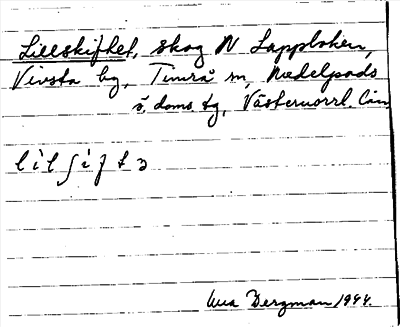 Lillskiftet, skog N Lappboken,
Vivsta by, Timrå sn, Medelpads
ö. doms. tg, Västernorrl. län
lilʃift
Bergman 1944.